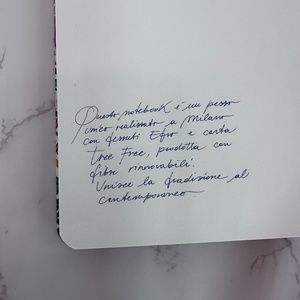 Questo notebook è un pezzo
unico realizzato a Milano
con tessuti Etro e carta
Tree Free, prodotta con
fibre rinnovabili.
Unisce la tradizione al
contemporaneo